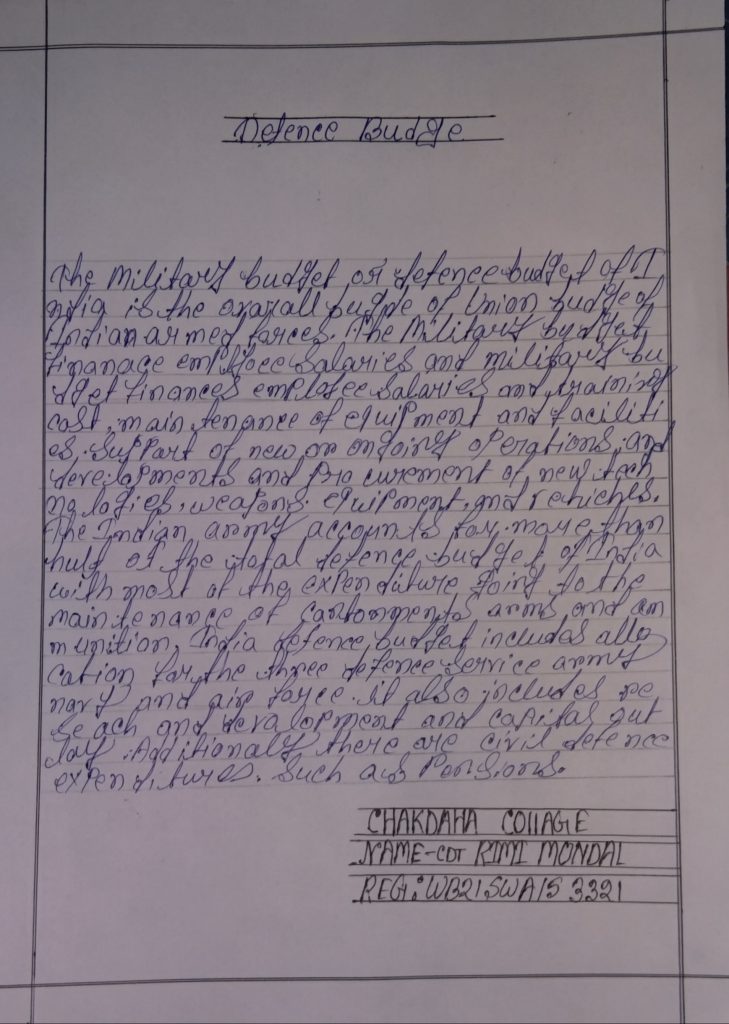 Defence Budge
The Military budget or defence budget of I
ndia is the overall budge of Union budge of
Indian armed forces. The Military budget
finanace employee salaries and military bu
dget finances employee salaries and training
cost, main tenance of equipment and faciliti
es. support of new or ongoing operations, and
developments and Pro curement of new tech
nologies, weapons. equipment, and vehicles.
The Indian army accounts for more than
hulf of the total defence budget of India
with most of the expenditure going to the
maintenance of cantonments arms and am
munition, India defence budget includes allo
cation for the three defence service army
navy and air force. it also includes re
se ach and devalopment and capital out
lay. Additionally there are civil defence
expenditures. Such ais Pensions.
CHAKDAHA COllAGE
NAME-CDT RIMI MONDAL
REG: WB21SWA1S 3321